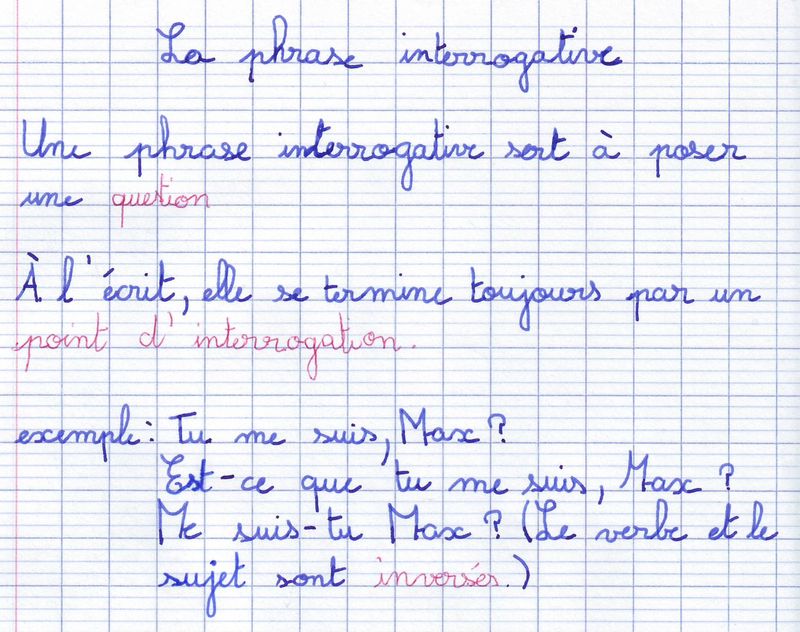 La phrase interrogative
Une phrase interrogative sert à poser
une question
À l'écrit, elle se termine toujours par un
point d'interrogation.
exemple: Tu me suis, Max ?
Est-ce que tu me suis, Max ?
Me suis-tu Max ? (Le verbe et le
sujet sont inversés.)